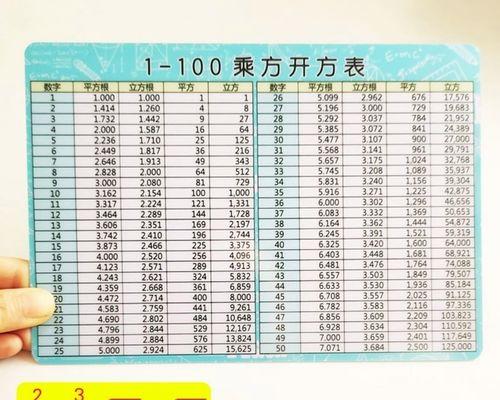 1-100 乘方开方表
数字 平方根 立方根 平方 立方
1 1.000 1.000 1 1
2 1.414 1.260 4 8
3 1.732 1.442 9 27
4 2.000 1.587 16 64
5 2.236 1.710 25 125
6 2.449 1.817 36 216
7 2.646 1.913 49 343
8 2.828 2.000 64 512
9 3.000 2.080 81 729
10 3.162 2.154 100 1,000
11 3.317 2.224 121 1,331
12 3.464 2.289 144 1,728
13 3.606 2.351 169 2,197
14 3.742 2.410 196 2,744
15 3.873 2.466 225 3,375
16 4.000 2.520 256 4,096
17 4.123 2.571 289 4,913
18 4.243 2.621 324 5,832
19 4.359 2.668 361 6,859
20 4.472 2.714 400 8,000
21 4.583 2.759 441 9,261
22 4.690 2.802 484 10,648
23 4.796 2.844 529 12,167
24 4.899 2.884 576 13,824
25 5.000 2.924 625 15,625
数字 平方根 立方根 平方 立方
26 5.099 2.962 676 17,576
27 5.196 3.000 729 19,683
28 5.292 3.037 784 21,952
29 5.385 3.072 841 24,389
30 5.477 3.107 900 27,000
31 5.568 3.141 961 29,791
32 5.657 3.175 1,024 32,768
33 5.745 3.208 1,089 35,937
34 5.831 3.240 1,156 39,304
35 5.916 3.271 1,225 42,875
36 6.000 3.302 1,296 46,656
37 6.083 3.332 1,369 50,653
38 6.164 3.362 1,444 54,872
39 6.245 3.391 1,521 59,319
40 6.325 3.420 1,600 64,000
41 6.403 3.448 1,681 68,921
42 6.481 3.476 1,764 74,088
43 6.557 3.503 1,849 79,507
44 6.633 3.530 1,936 85,184
45 6.708 3.557 2,025 91,125
46 6.782 3.583 2,116 97,336
47 6.856 3.609 2,209 103,823
48 6.928 3.634 2,304 110,592
49 7.000 3.659 2,401 117,649
50 7.071 3.684 2,500 125,000
2 3